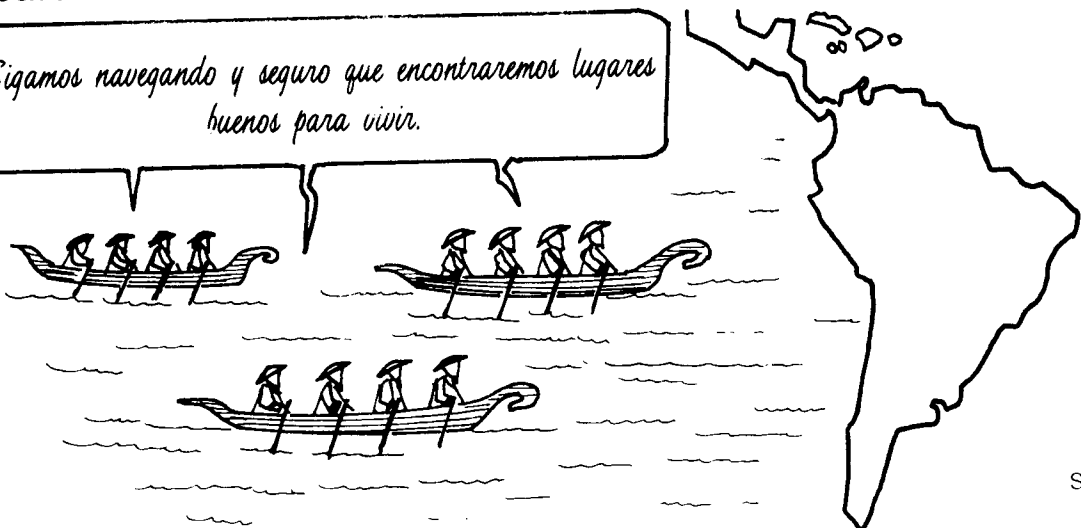 Sigamos navegando y seguro que encontraremos lugares
buenos para vivir.